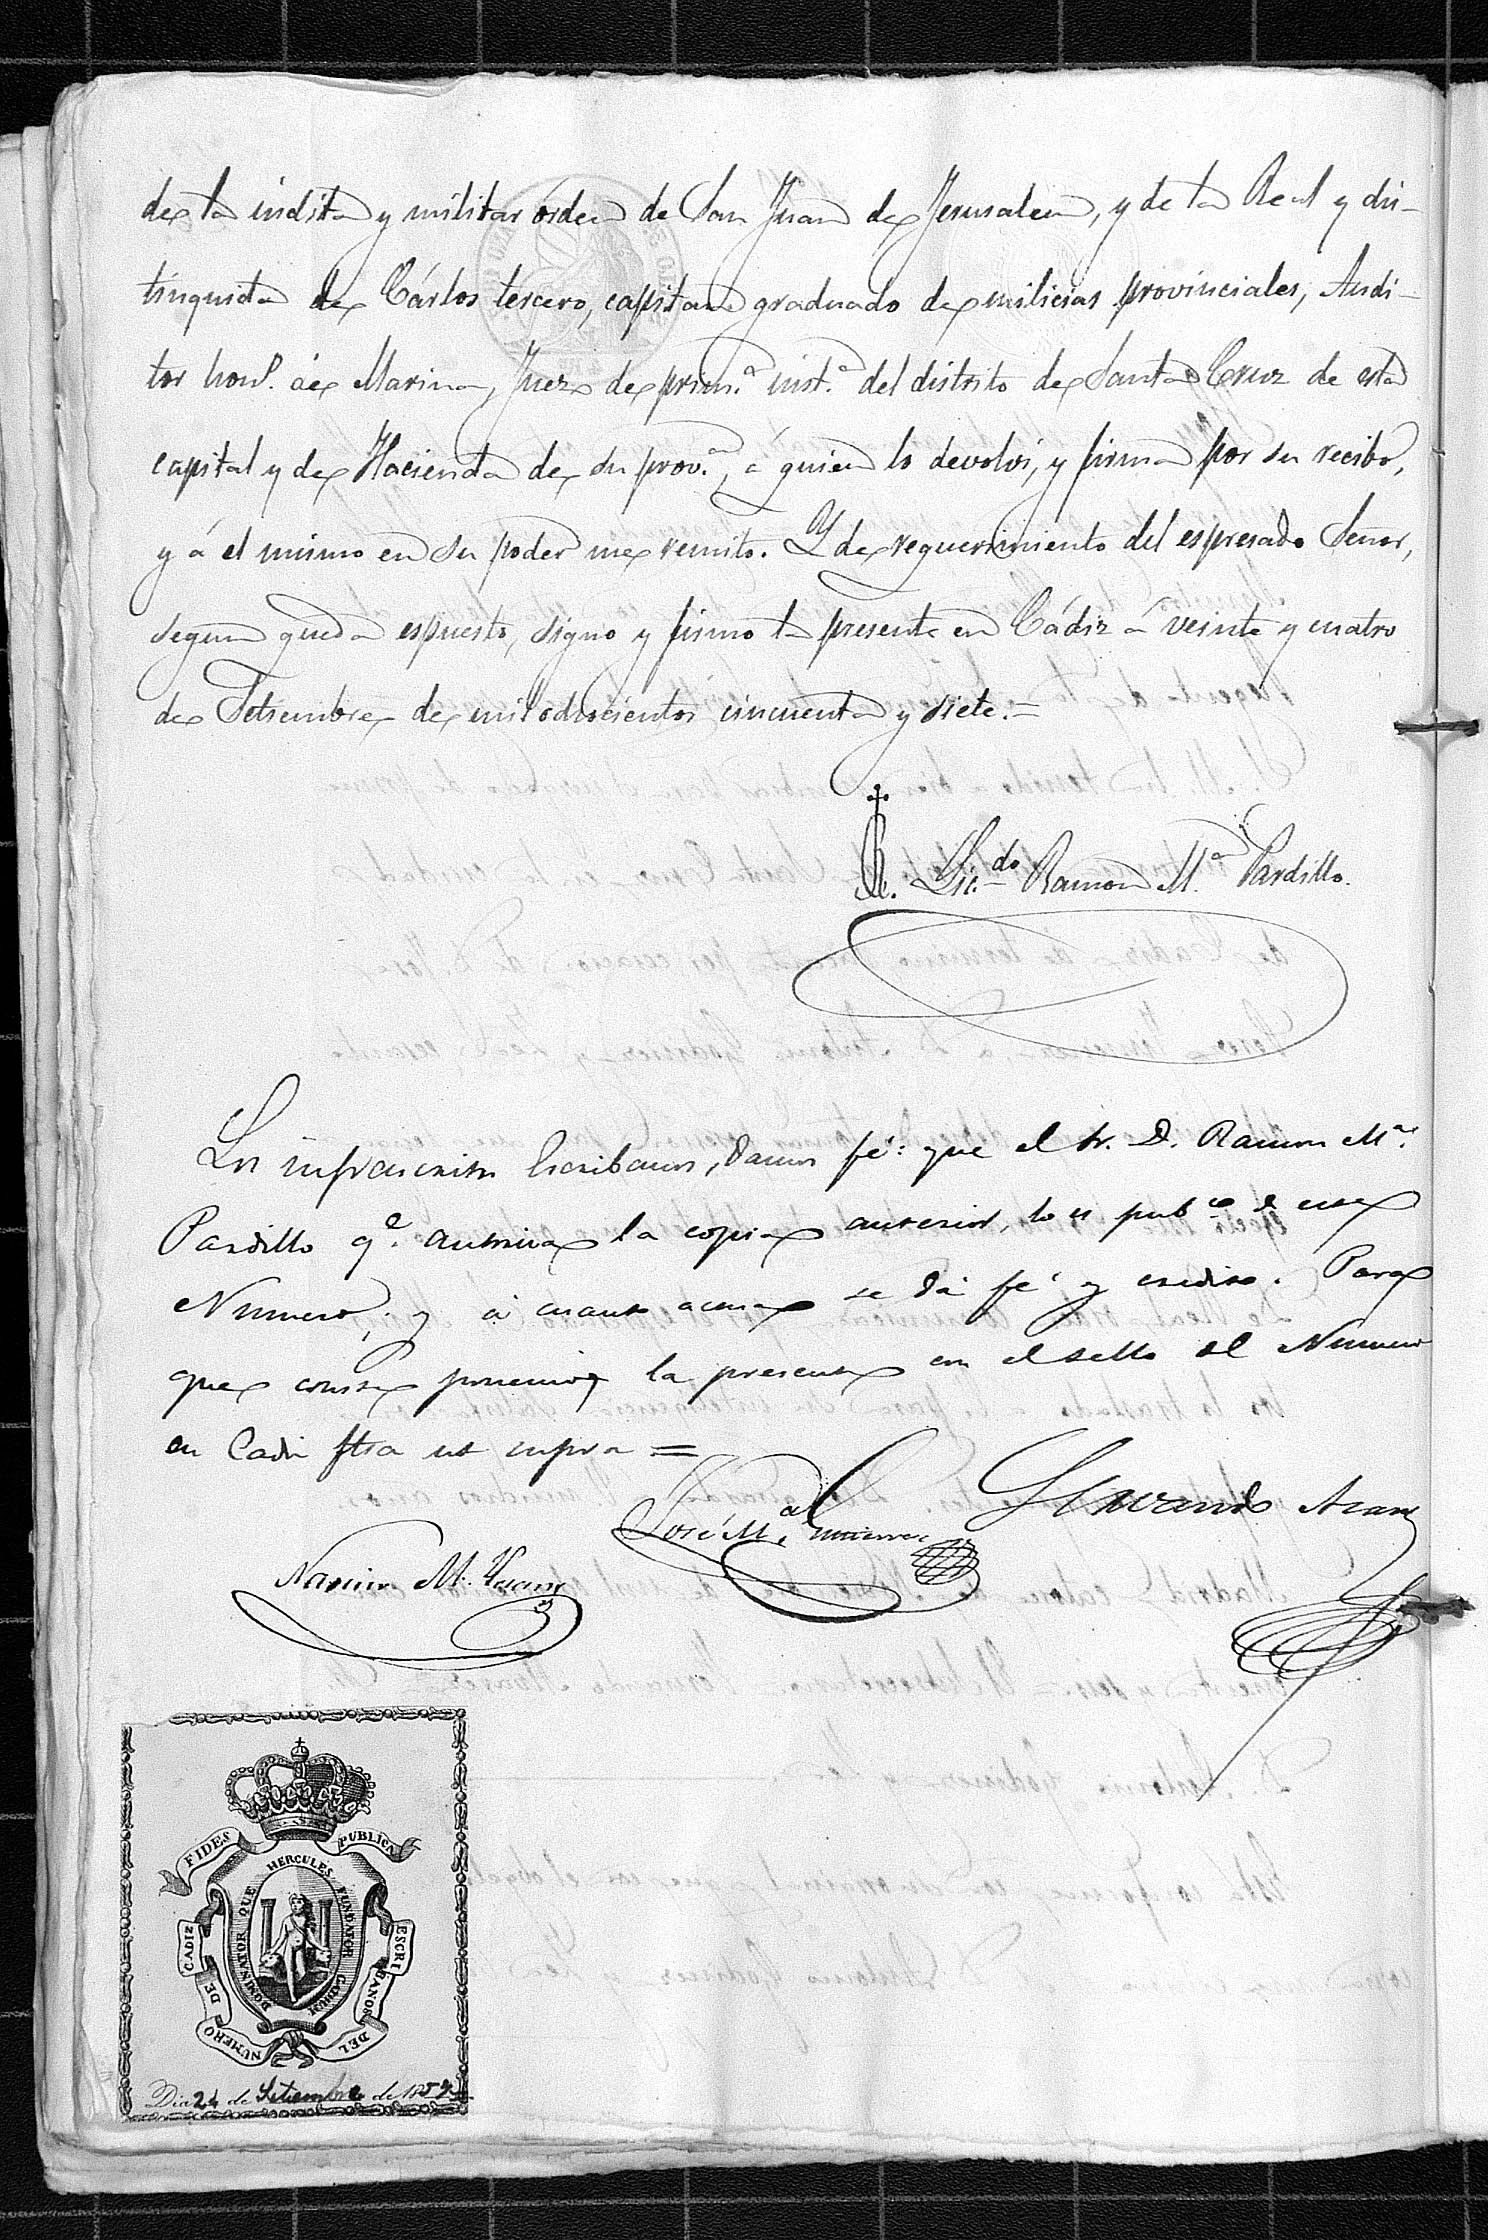 de la ínclita y militar órden de San Juan de Jerusalem, y de la Real y dis-
tinguida de Cárlos tercero, capitan graduado de milicias provinciales, Audi-
tor hon.l de Marina, Juez de prim.a inst.a del distrito de Santa Cruz de esta
capital y de Hacienda de su prov.a, á quien lo devolví, y firma por su recibo,
y á el mismo en su poder me remito. Y de requerimiento del espresado Señor,
segun queda espuesto, signo y firmo la presente en Cádiz á veinte y cuatro
de Setiembre de mil ochocientos cincuenta y siete.=
Lic.do Ramon M.a Pardillo.
Los infrascritos Escribanos, damos fé: que el Sr. D. Ramon M.a
Pardillo q.e autoriza la copia anterior, lo es pub.co de este
Numero, y á cuanto actua se dá fé y credito. Para
que conste ponemos la presente con el sello del Numero
en Cadiz fha ut supra =
José M.a Gutierrez
Narciso M.
FIDES PUBLICA
HERCULES FUNDATOR GADIUM DOMINATOR QUE
ESCRIBANOS DEL NUMERO DE CADIZ
Dia 24 de Setiembre de 1857